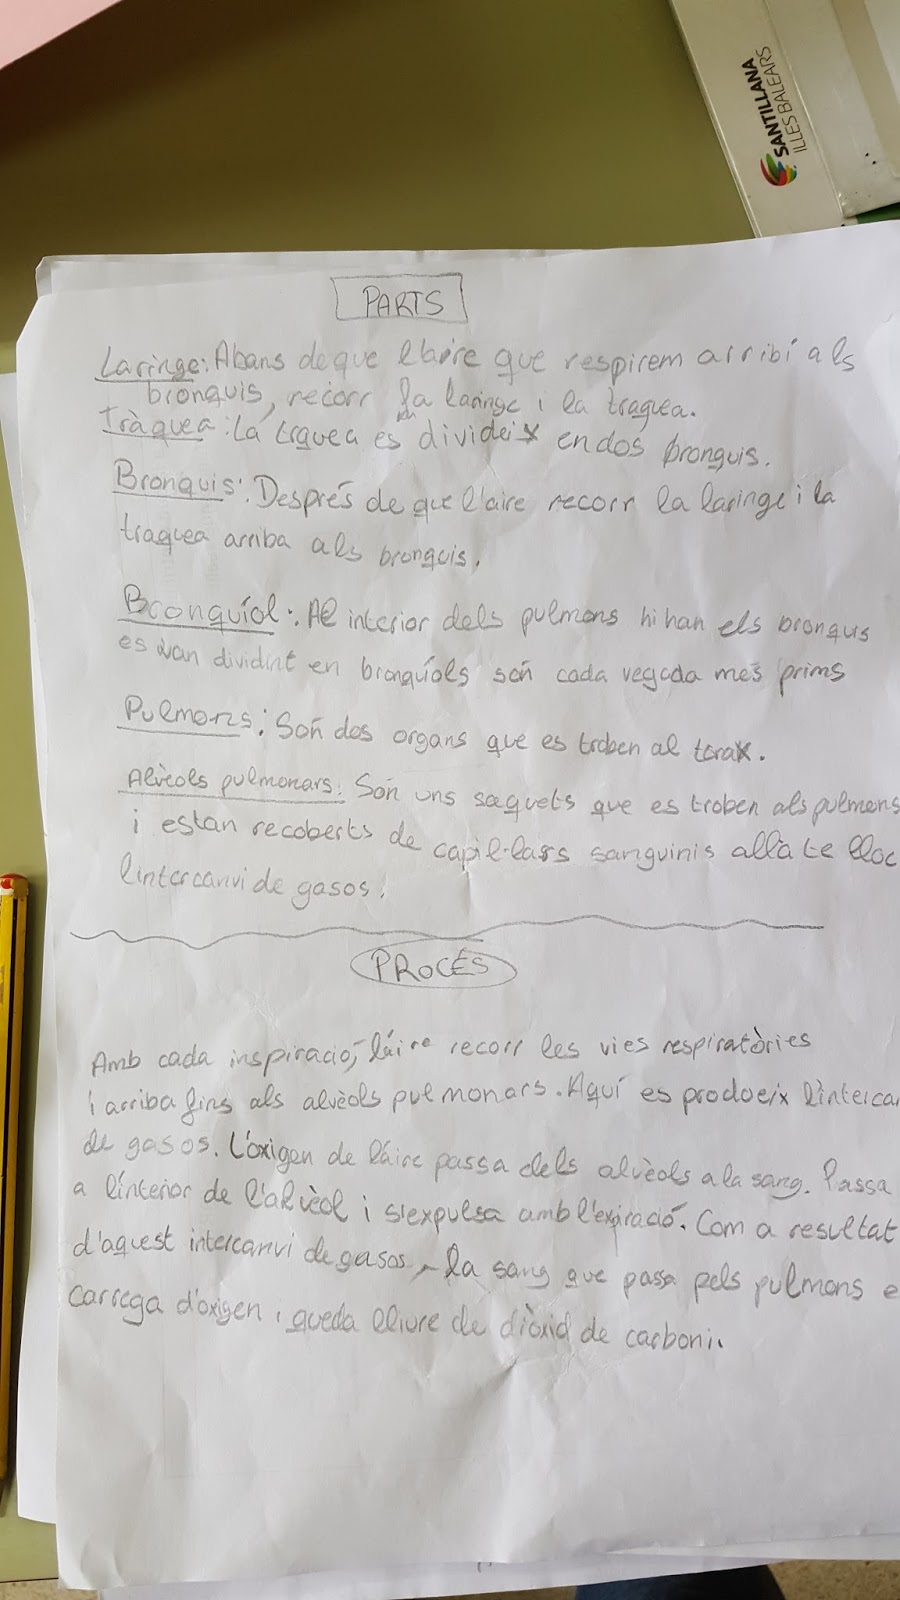 SANTILLANA
ILLES BALEARS
PARTS
Laringe: Abans de que l'aire que respirem arribi als
bronquis, recorr la laringe i la traquea.
Tràquea: La traquea es divideix en dos bronquis.
Bronquis: Després de que l'aire recorr la laringe i la
traquea arriba als bronquis.
Bronquíol: Al interior dels pulmons hi han els bronquis
es van dividint en bronquíols són cada vegada més prims
Pulmons: Són dos organs que es troben al torax.
Alvèols pulmonars: Són uns saquets que es troben als pulmons
i estan recoberts de capil·lars sanguinis allà te lloc
l'intercanvi de gasos.
PROCÉS
Amb cada inspiració, l'aire recorr les vies respiratòries
i arriba fins als alvèols pulmonars. Aquí es prodoeix l'interca
de gasos. L'oxigen de l'aire passa dels alvèols a la sang. Passa
a l'interior de l'alvèol i s'expulsa amb l'expiració. Com a resultat
d'aquest intercanvi de gasos, la sang que passa pels pulmons e
carrega d'oxigen i queda lliure de diòxid de carboni.